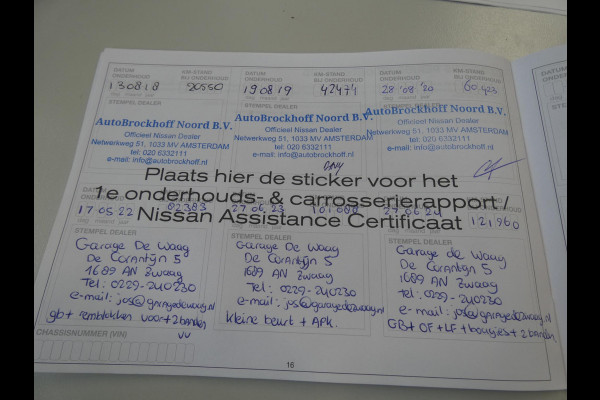 DATUM ONDERHOUD KM-STAND BIJ ONDERHOUD DATUM ONDERHOUD KM-STAND BIJ ONDERHOUD DATUM ONDERHOUD KM-STAND BIJ ONDERHOUD
130818 190819 42474 28 '08 '20 60.423
dag maand jaar dag maand jaar dag maand jaar
STEMPEL DEALER STEMPEL DEALER STEMPEL DEALER
AutoBrockhoff Noord B.V. AutoBrockhoff Noord B.V. AutoBrockhoff Noord B.V.
Officieel Nissan Dealer Officieel Nissan Dealer Officieel Nissan Dealer
Netwerkweg 51, 1033 MV AMSTERDAM Netwerkweg 51, 1033 MV AMSTERDAM Netwerkweg 51, 1033 MV AMSTERDAM
tel: 020 6332111 tel: 020 6332111 tel: 020 6332111
e-mail: info@autobrockhoff.nl e-mail: info@autobrockhoff.nl e-mail: info@autobrockhoff.nl
Plaats hier de sticker voor het
1e onderhouds- & carrosserierapport /
Nissan Assistance Certificaat
17 05 22 27 06 23 101 000 27 06 24 121960
STEMPEL DEALER STEMPEL DEALER STEMPEL DEALER
Garage De Waag Garage De Waag Garage De Waag
De Corantijn 5 De Corantijn 5 De Corantijn 5
1689 AN Zwaag 1689 AN Zwaag 1689 AN Zwaag
Tel: 0229-240230 Tel: 0229-240230 Tel: 0229-240230
e-mail: jos@garagedewaag.nl e-mail: jos@garagedewaag.nl e-mail: jos@garagedewaag.nl
gb+ remblokken voor+2banden kleine beurt + APK. GB+OF+LF+bougies+2 banden
CHASSISNUMMER (VIN)
16